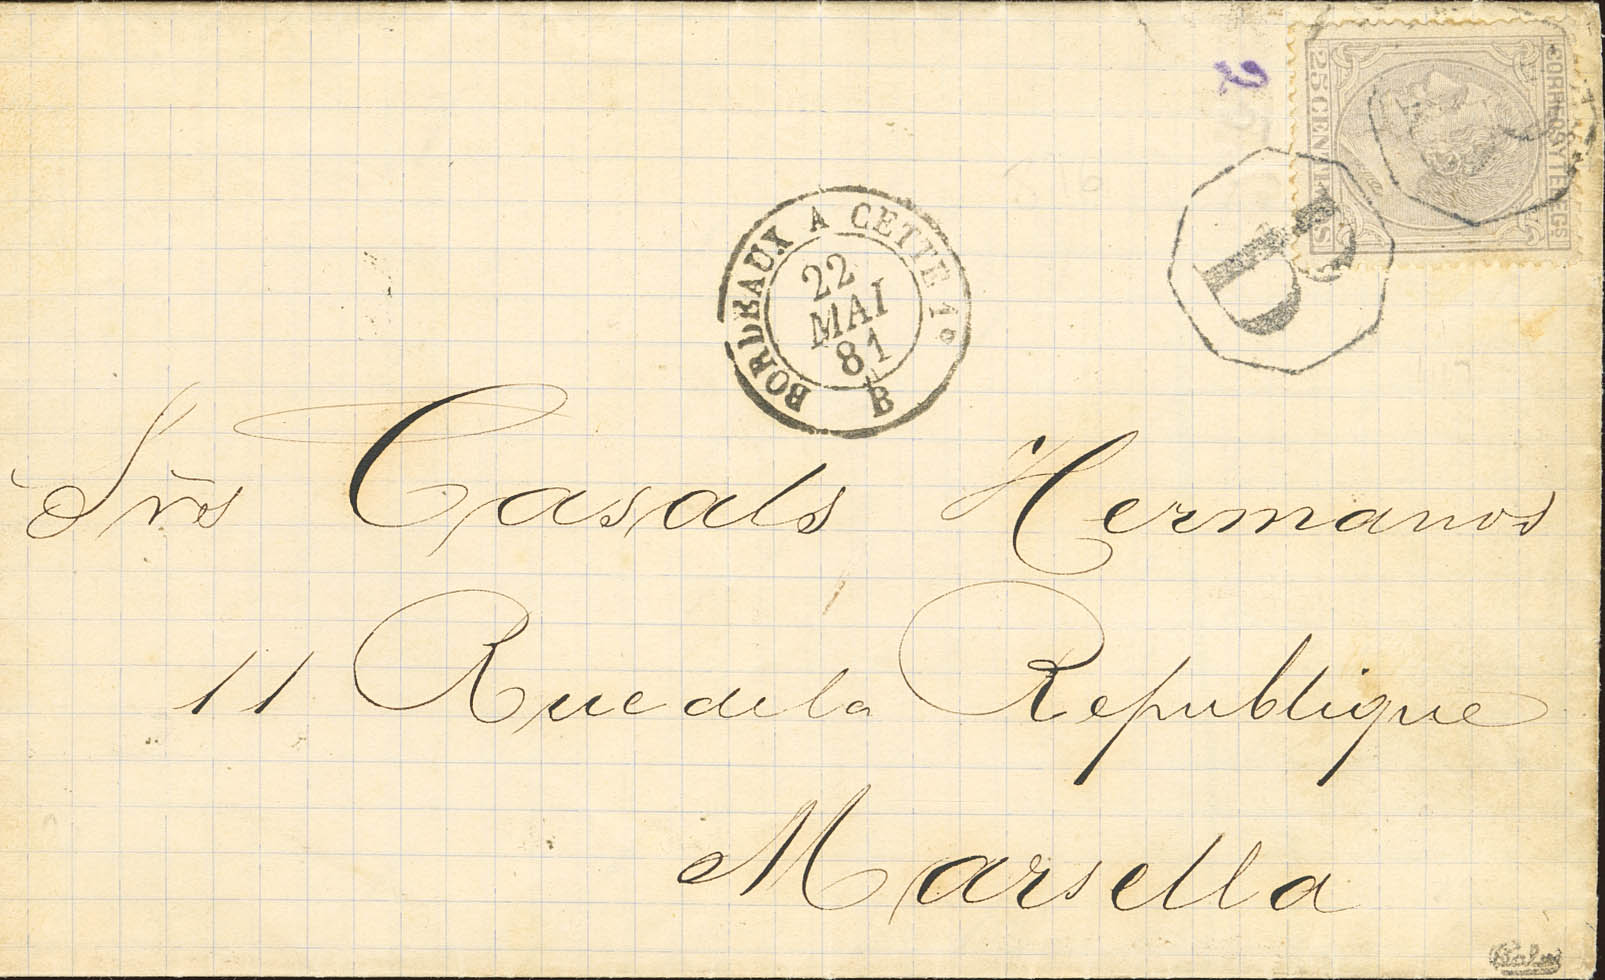 CORREOS Y TELEGS
25 CENT. PES
BORDEAUX A CETTE 1°
22
MAI
81
B
D
Srs Casals Hermanos
11 Rue de la Republique
Marsella